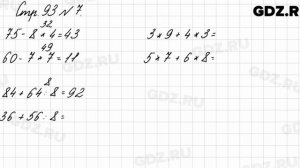 GDZ.RU
Стр. 93 № 7
32
75 - 8 * 4 = 43
49
60 - 7 * 7 = 11
8
84 + 64 : 8 = 92
36 + 56 : 8 =
3 * 9 + 4 * 3 =
5 * 7 + 6 * 8 =